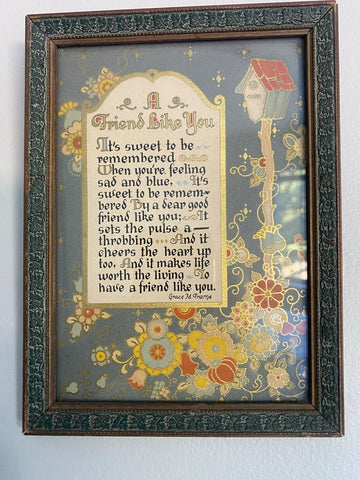 A
Friend Like You
It's sweet to be
remembered
When you're feeling
sad and blue, It's
sweet to be remem-
bered By a dear good
friend like you; It
sets the pulse a
throbbing And it
cheers the heart up
too, And it makes life
worth the living To
have a friend like you.
Grace M. Frame